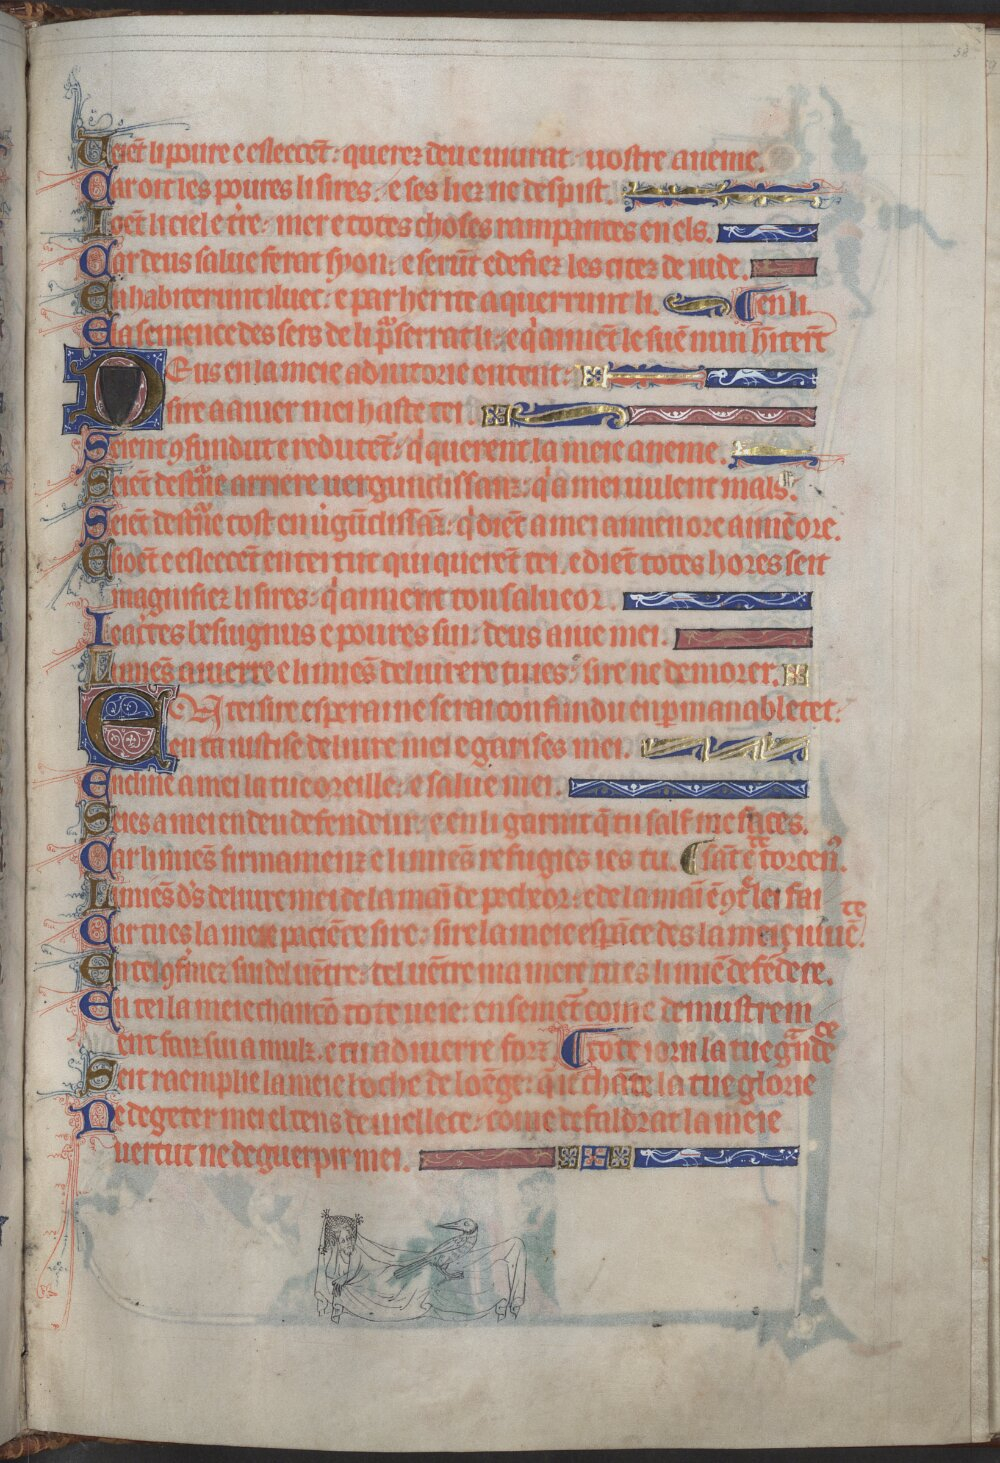 58
Veiet li poure e esleecet: querez deu e uiurat uostre aneme.
Car oit les poures li sires. e ses liez ne despist.
Loent li ciel e tre: mer e totes choses rampantes en els.
Car deus salue ferat syon: e serunt edefiez les citez de iude.
E inhabiterunt iluec: e par herite aquerrunt li.
E la semence des sers de li pserrat li: e q aimet le suen nun hiteret
Deus en la meie adiutorie entent:
sire a aiuer mei haste tei
Seient 9fundut e redutet: q querent la meie aneme.
Seiet desture arriere uergundissanz: q a mei uulent mals.
Seiet desture tost en ugudissaz: q diet a mei aimen ore aimeore.
Esioet e esleecet en tei tut qui queret tei. e diet totes hores seit
magnifiez li sires: q aiment tou salueor.
Ieactes besuignus e poures sui: deus aiue mei.
Li mies aiuerre e li mies deliurere tu ies: sire ne demorer.
En tei sire esperai ne serai confundu en pmanabletet:
en ta iustise deliure mei e garises mei.
Encline a mei la tue oreille: e salue mei.
Seies a mei en deu defendeur: e en li garnit q tu salf me faces.
Car li mies firmamenz e li mies refugies ies tu.
Li mies ds deliure mei de la mai de pecheor: e de la mai e 9t lei fai
Car tu es la meie pacience sire: sire la meie espace des la meie iuuete.
En tei 9fmez sui del uetre: del uetre ma mere tu es li mie defedere.
En tei la meie chanco tote ueie: ensemet come demustrem
ent faiz sui a mulz. e tu adiuerre forz tote iorn la tue gnde
Seit raemplie la meie boche de loege: q ie chate la tue glorie
Ne degeter mei el tens de uiellece: come defaldrat la meie
uertut ne deguerpir mei.